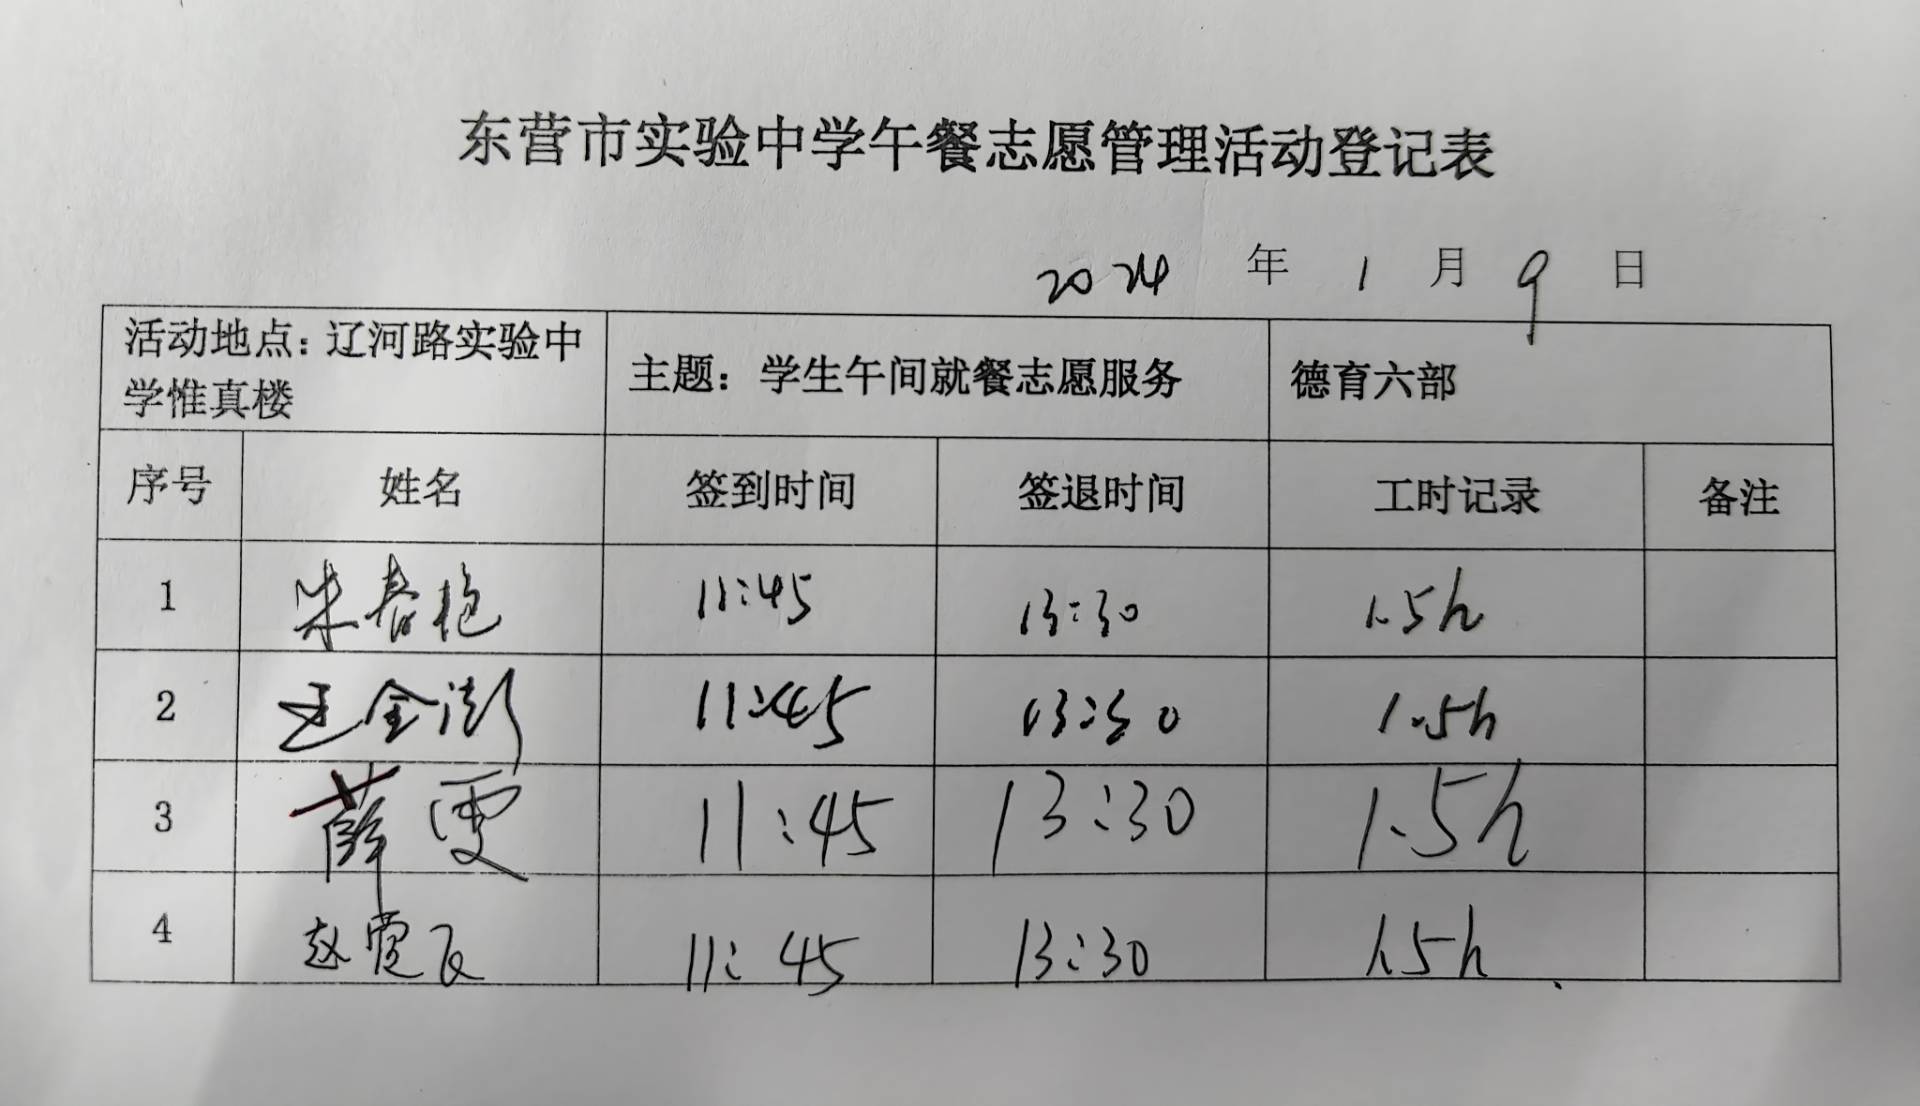 东营市实验中学午餐志愿管理活动登记表
2024 年 1 月 9 日
活动地点：辽河路实验中
学惟真楼
主题：学生午间就餐志愿服务
德育六部
序号 姓名 签到时间 签退时间 工时记录 备注
1 朱春艳 11:45 13:30 1.5h
2 王金澎 11:45 13:30 1.5h
3 薛雯 11:45 13:30 1.5h
4 赵霞 11:45 13:30 1.5h